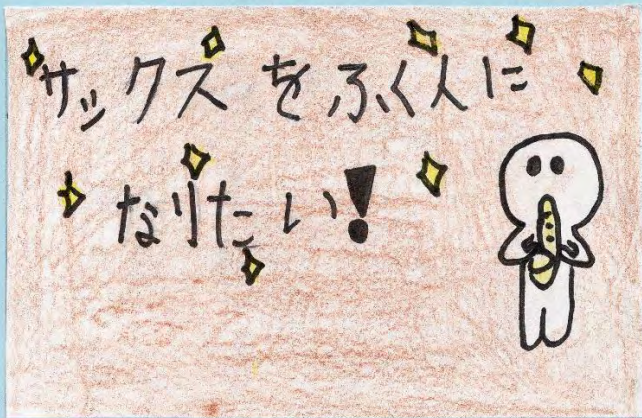 サックスをふく人に
なりたい!